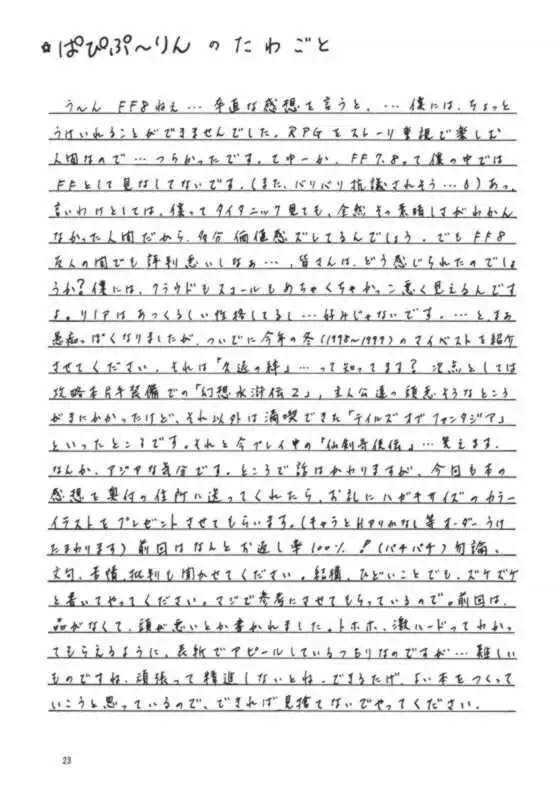 ☆ぱぴぷ～りんのたわごと
う～ん FF8ねぇ… 率直な感想を言うと、… 僕には、ちょっと
うけいれることができませんでした。RPGをストーリー重視で楽しむ
人間なので… つらかったです。てゆーか、FF7、8って僕の中では
FFとして見なしてないです。(また、バリバリ抗議されそう…6) あっ、
言いわけとしては、僕ってタイタニック見ても、全然その素晴しさがわかん
なかった人間だから、多分価値感ズレてるんでしょう。でもFF8
友人の間でも評判悪いしなぁ…、皆さんは、どう感じられたのでしょ
うか? 僕には、クラウドもスコールもめちゃくちゃかっこ悪く見えるんです
よ。リノアはあつくるしい性格してるし… 好みじゃないです。… と、まあ
愚痴っぽくなりましたが、ついでに今年の冬(1998~1999)のマイベストを紹介
させてください。それは「久遠の絆」… って知ってます? 次点としては
攻略本片手装備での「幻想水滸伝2」、主人公達の頭悪そうなところ
がきにかかったけど、それ以外は満喫できた「テイルズオブファンタジア」
といったところです。それと今プレイ中の「仙剣奇侠伝」… 笑えます。
なんか、アジアな気分です。ところで話はかわりますが、今回も本の
感想を奥付の住所に送ってくれたら、お礼にハガキサイズのカラー
イラストをプレゼントさせてもらいます。(キャラとHアリかなし等オーダーうけ
たまわります) 前回はなんとお返し率100%!(パチパチ) 勿論、
文句、苦情、批判も聞かせてください。結構、ひどいことでも、ズケズケ
と書いてやってください。マジで参考にさせてもらっているので。前回は、
品がなくて、頭が悪いとか書かれました。トホホ、激ハードってわかっ
てもらえるように、表紙でアピールしているつもりなのですが… 難しい
ものですね。頑張って精進しないとね。できるだけ、よい本をつくって
いこうと思っているので、できれば見捨てないでやってください。
23